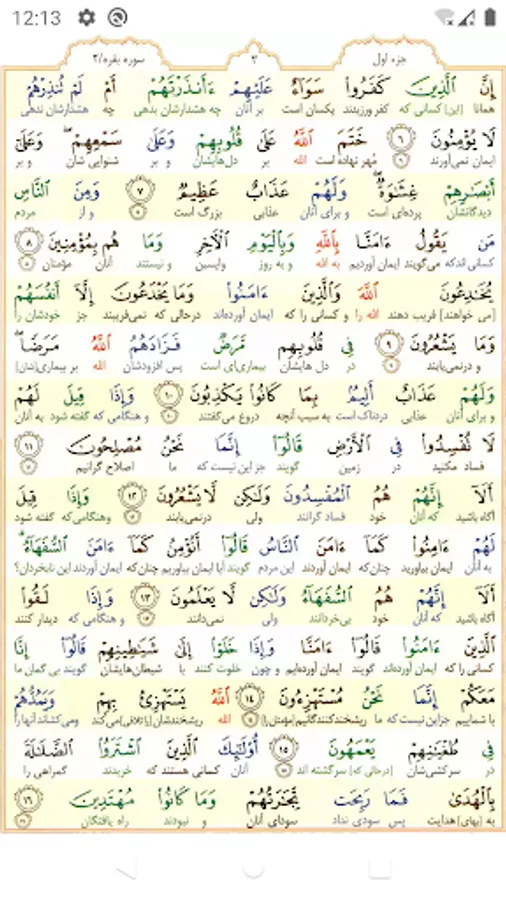 12:13
سوره بقره/۲ ۳ جزء اول
إِنَّ ٱلَّذِينَ كَفَرُوا۟ سَوَآءٌ عَلَيْهِمْ ءَأَنذَرْتَهُمْ أَمْ لَمْ تُنذِرْهُمْ
همانا [این] کسانی که کفر ورزیدند یکسان است بر آنان چه هشدارشان بدهی چه هشدارشان ندهی
لَا يُؤْمِنُونَ ۶ خَتَمَ ٱللَّهُ عَلَىٰ قُلُوبِهِمْ وَعَلَىٰ سَمْعِهِمْ ۖ وَعَلَىٰٓ
ایمان نمی‌آورند مُهر نهاده است الله بر دل‌هایشان و بر شنوایی شان و بر
أَبْصَـٰرِهِمْ غِشَـٰوَةٌ ۖ وَلَهُمْ عَذَابٌ عَظِيمٌ ۷ وَمِنَ ٱلنَّاسِ
دیدگانشان پرده‌ای است و برای آنان عذابی بزرگ است و از مردم
مَن يَقُولُ ءَامَنَّا بِٱللَّهِ وَبِٱلْيَوْمِ ٱلْـَٔاخِرِ وَمَا هُم بِمُؤْمِنِينَ ۸
کسانی اندکه می‌گویند ایمان آوردیم به الله و به روز واپسین و نیستند آنان مؤمنان
يُخَـٰدِعُونَ ٱللَّهَ وَٱلَّذِينَ ءَامَنُوا۟ وَمَا يَخْدَعُونَ إِلَّآ أَنفُسَهُمْ
[می خواهند] فریب دهند الله را و کسانی را که ایمان آورده‌اند درحالی که نمی‌فریبند جز خودشان را
وَمَا يَشْعُرُونَ ۹ فِى قُلُوبِهِم مَّرَضٌ فَزَادَهُمُ ٱللَّهُ مَرَضًا ۖ
و درنمی‌یابند در دل هایشان بیماری‌ای است پس افزودشان الله بر بیماری[شان]
وَلَهُمْ عَذَابٌ أَلِيمٌۢ بِمَا كَانُوا۟ يَكْذِبُونَ ۱۰ وَإِذَا قِيلَ لَهُمْ
و برای آنان عذابی دردناک است به سبب آنچه دروغ می‌گفتند و هنگامی که گفته شود به آنان
لَا تُفْسِدُوا۟ فِى ٱلْأَرْضِ قَالُوٓا۟ إِنَّمَا نَحْنُ مُصْلِحُونَ ۱۱
فساد مکنید در زمین گویند جز این نیست که ما اصلاح گرانیم
أَلَآ إِنَّهُمْ هُمُ ٱلْمُفْسِدُونَ وَلَـٰكِن لَّا يَشْعُرُونَ ۱۲ وَإِذَا قِيلَ
آگاه باشید که آنان خود فساد گرانند ولی درنمی‌یابند وهنگامی‌که گفته شود
لَهُمْ ءَامِنُوا۟ كَمَآ ءَامَنَ ٱلنَّاسُ قَالُوٓا۟ أَنُؤْمِنُ كَمَآ ءَامَنَ ٱلسُّفَهَآءُ ۗ
به آنان ایمان بیاورید چنان‌که ایمان آوردند این مردم گویند آیا ایمان بیاوریم چنان‌که ایمان آوردند این نابخردان؟
أَلَآ إِنَّهُمْ هُمُ ٱلسُّفَهَآءُ وَلَـٰكِن لَّا يَعْلَمُونَ ۱۳ وَإِذَا لَقُوا۟
آگاه باشید که آنان خود بی‌خردانند ولی نمی‌دانند و هنگامی که دیدار کنند
ٱلَّذِينَ ءَامَنُوا۟ قَالُوٓا۟ ءَامَنَّا وَإِذَا خَلَوْا۟ إِلَىٰ شَيَـٰطِينِهِمْ قَالُوٓا۟ إِنَّا
کسانی را که ایمان آورده‌اند گویند ایمان آورده‌ایم و چون خلوت کنند با شیطان‌هایشان گویند بی گمان ما
مَعَكُمْ إِنَّمَا نَحْنُ مُسْتَهْزِءُونَ ۱۴ ٱللَّهُ يَسْتَهْزِئُ بِهِمْ وَيَمُدُّهُمْ
با شماییم جزاین نیست که ما ریشخندکنندگانیم[مؤمنان را] الله ریشخندشان[راتلافی]می‌کند ومی‌کشاند آنها را
فِى طُغْيَـٰنِهِمْ يَعْمَهُونَ ۱۵ أُو۟لَـٰٓئِكَ ٱلَّذِينَ ٱشْتَرَوُا۟ ٱلضَّلَـٰلَةَ
در سرکشی‌شان [درحالی که] سرگشته اند آنان کسانی هستند که خریدند گمراهی را
بِٱلْهُدَىٰ فَمَا رَبِحَت تِّجَـٰرَتُهُمْ وَمَا كَانُوا۟ مُهْتَدِينَ ۱۶
به [بهای] هدایت پس سودی نداد سودای آنان و نبودند راه یافتگان